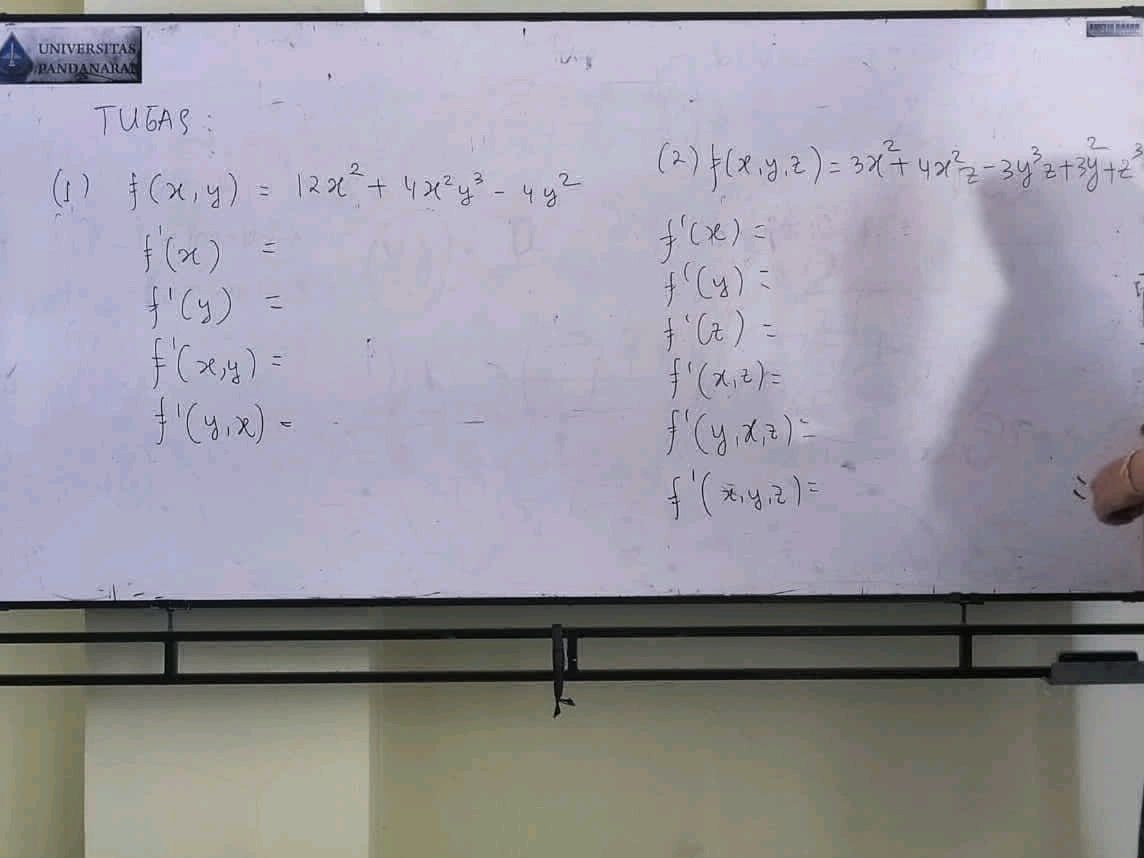 UNIVERSITAS
PANDANARAN
TUGAS :
(1) f(x,y) = 12x² + 4x²y³ - 4y²
f'(x) =
f'(y) =
f'(x,y) =
f'(y,x) =
(2) f(x,y,z) = 3x² + 4x²z - 3y³z + 3y² + z³
f'(x) =
f'(y) =
f'(z) =
f'(x,z) =
f'(y,x,z) =
f'(x,y,z) =